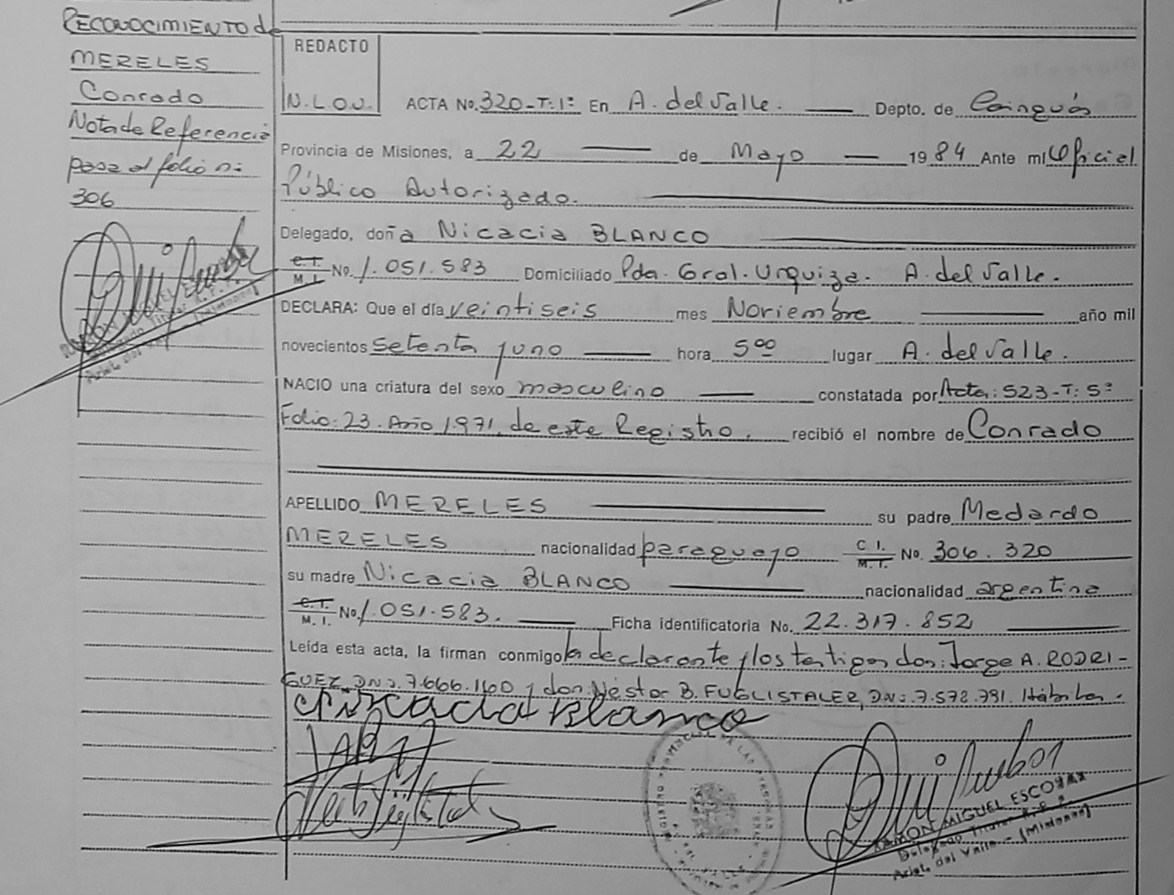 RECONOCIMIENTO de
MERELES
Conrado
Nota de Referencia
pasa al folio n:
306
REDACTO
N.L.O.V.
ACTA No. 320-T:1º En A. del Valle. Depto. de Cainguás
Provincia de Misiones, a 22 de Mayo 1984 Ante mí Oficial
Público Autorizado.
Delegado, doña Nicacia BLANCO
C.I. M.I. No. 1.051.583 Domiciliado Pda. Gral. Urquiza. A. del Valle.
DECLARA: Que el día veintiseis mes Noviembre año mil
novecientos setenta y uno hora 5ºº lugar A. del Valle.
NACIO una criatura del sexo masculino constatada por Acta: 523-T: 5º
Folio: 23. Año 1.971, de este Registro. recibió el nombre de Conrado
APELLIDO MERELES su padre Medardo
MERELES nacionalidad paraguayo C.I. M.I. No. 306.320
su madre Nicacia BLANCO nacionalidad argentina
C.I. M.I. No. 1.051.583. Ficha identificatoria No. 22.317.852
Leída esta acta, la firman conmigo la declarante y los testigos don: Jorge A. RODRI-
GUEZ, DN: 7.666.160 y don Néstor B. FUGLISTALER, DN: 7.578.791. Hábiles.
Blanco
RAMON MIGUEL ESCOBAR
Delegado Titular R.P.P.
Arist. del Valle - (Misiones)